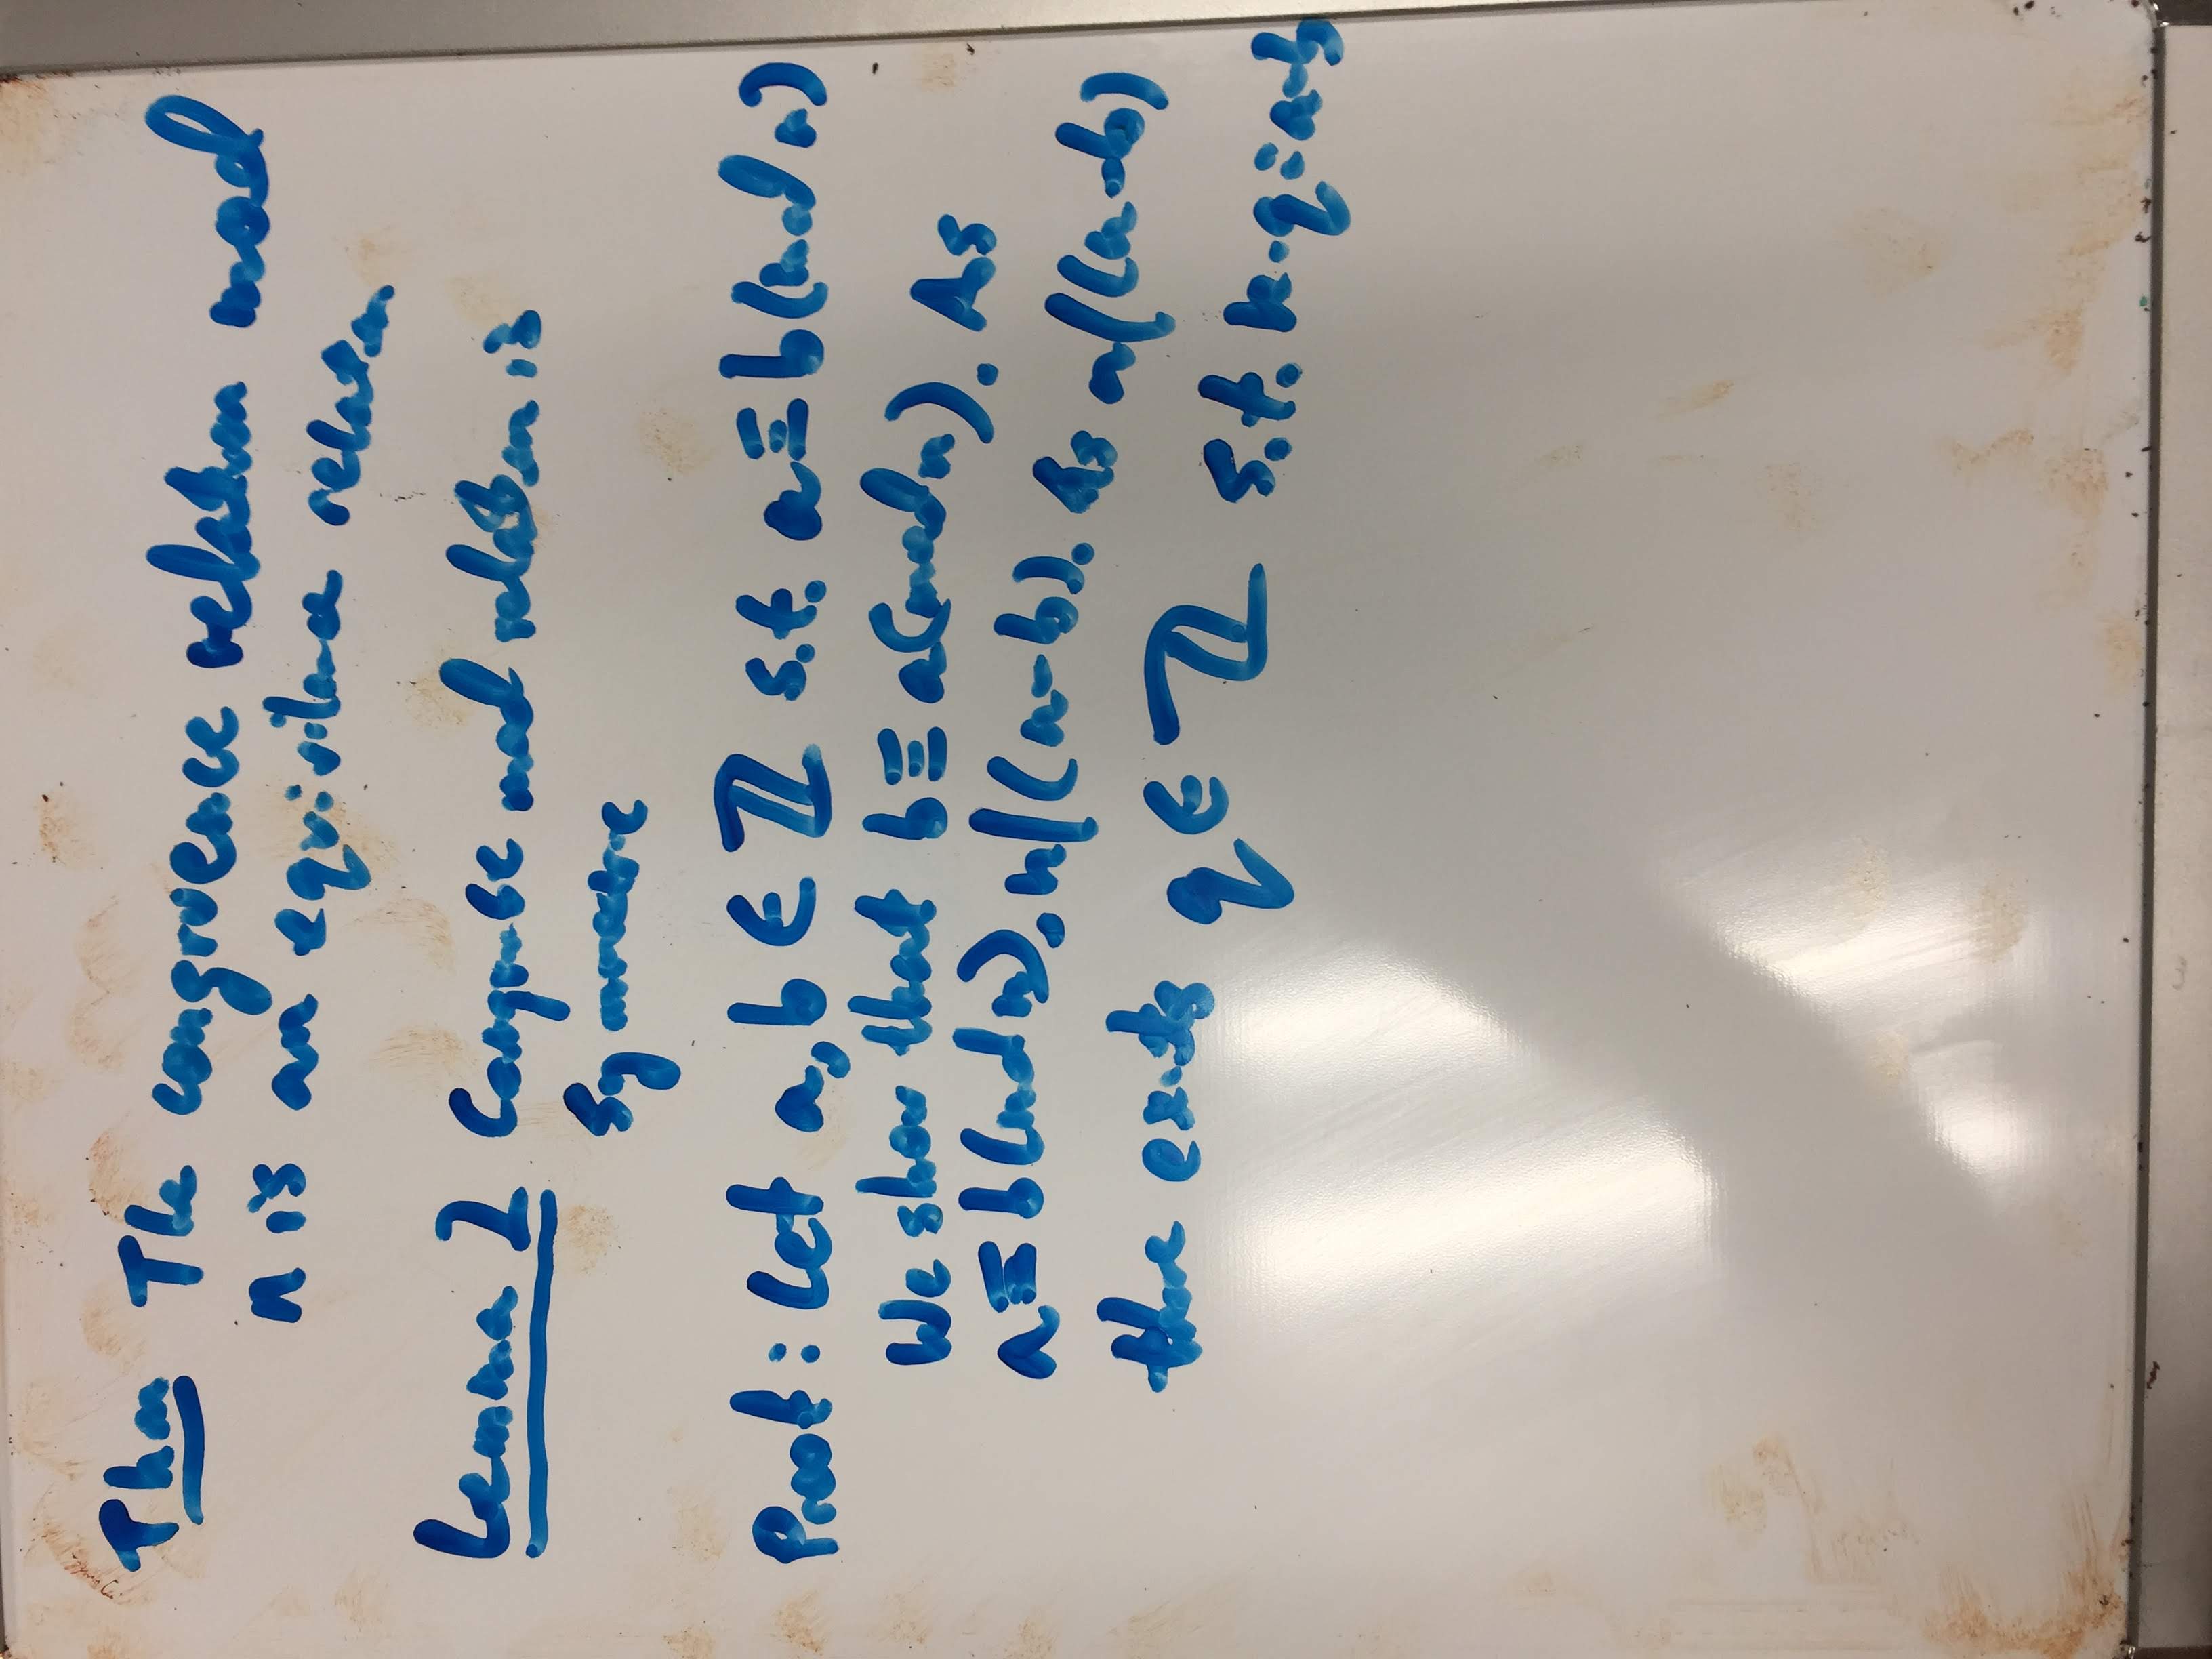 Thm The congruence relation mod
n is an equivilence relation
Lemma 2 Congruence mod relation is
Symmetric
Proof: Let a, b ∈ ℤ s.t. a ≡ b (mod n)
We show that b ≡ a (mod n). As
a ≡ b (mod n), n | (a-b). As n | (a-b)
there exists q ∈ ℤ s.t. n·q = a-b